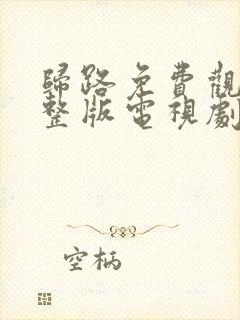 歸路免費觀
整版電視劇
空柄